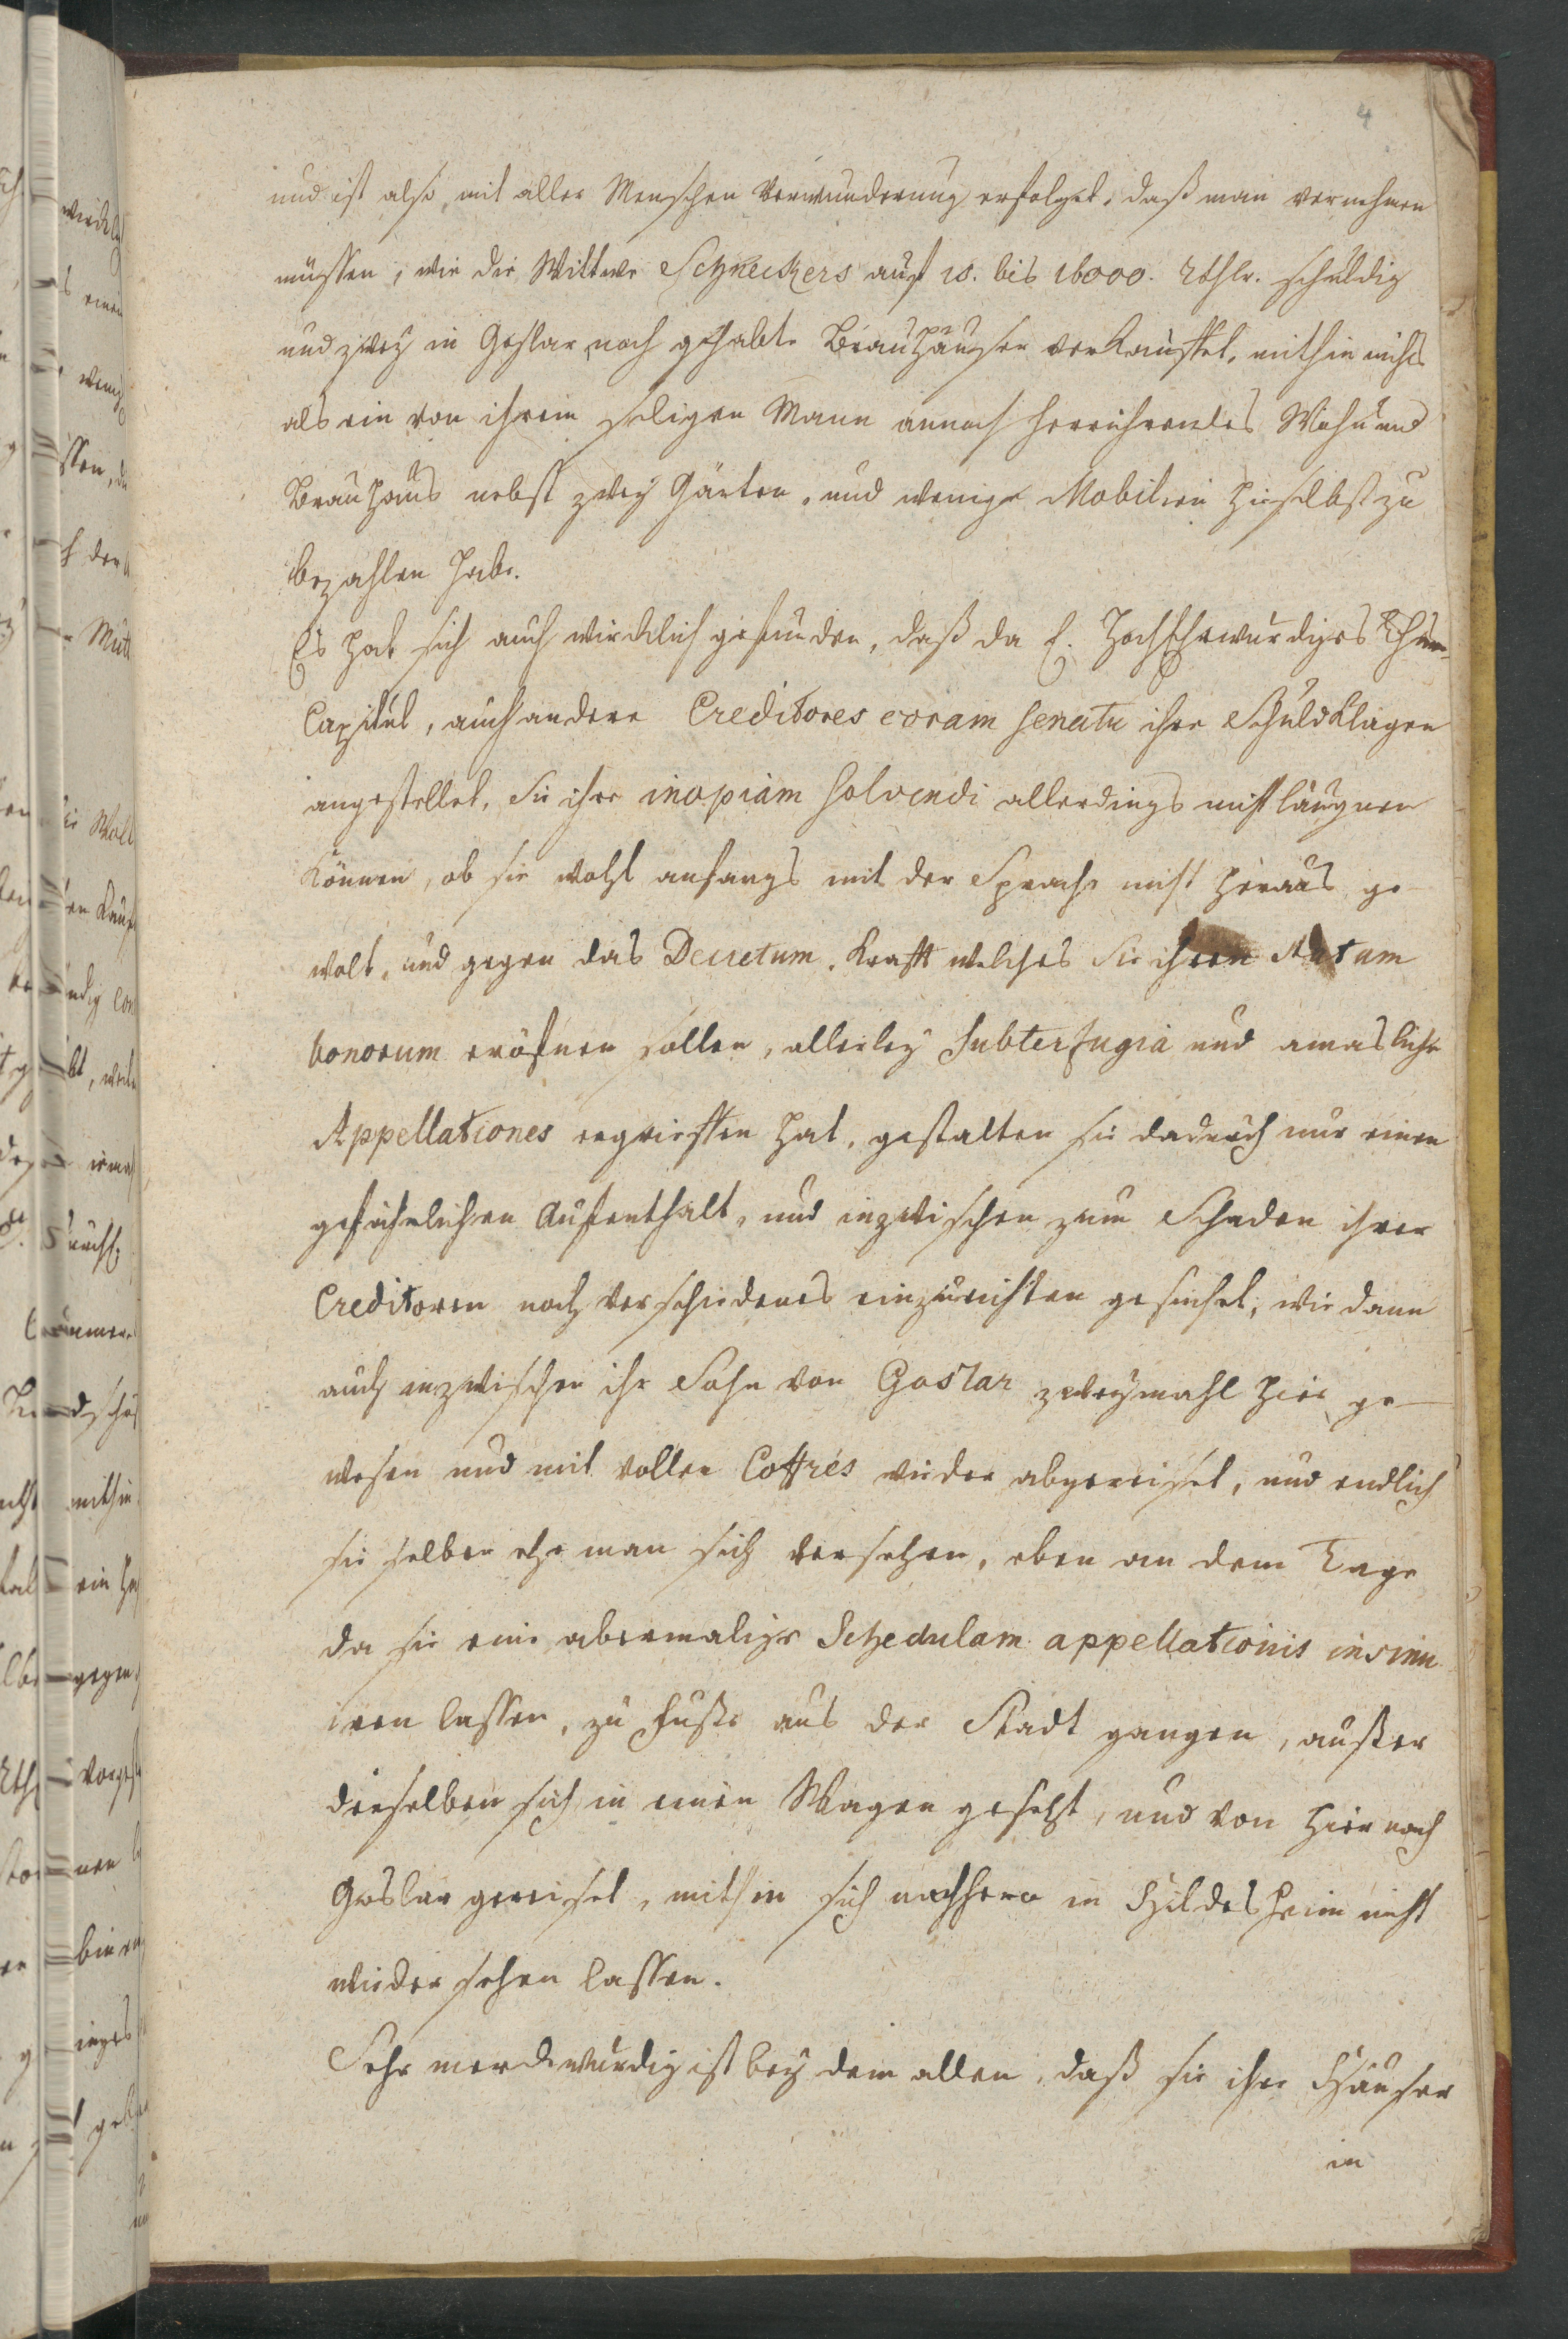 4
und ist also mit aller Menschen Verwunderung erfolget, daß man vernehmen
müssen, wie die Wittwe Schneckers auf 15. bis 16000. Rthlr. schuldig
und zwey in Goslar noch gehabte Brauhäuser verkauffet, mithin nichts
als ein von ihrem seligen Mann annoch herrührendes Wohn und
Brauhaus nebst zwey Gärten, und wenige Mobilien hieselbst zu
bezahlen habe.
Es hat sich auch wircklich gefunden, daß da E. HochEhrwürdiges Thum-
Capitul, auch andere Creditores coram Senatu ihre Schuldklagen
angestellet, Sie ihre inopiam solvendi allerdings nicht läugnen
können, ob sie wohl anfangs mit der Sprache nicht heraus ge-
wolt, und gegen das Decretum, krafft welches Sie ihren Statum
bonorum eröfnen sollen, allerley Subterfugia und anmasliche
Appellationes ergrieffen hat, gestalten sie dadurch nur einen
gefährlichen Aufenthalt, und inzwischen zum Schaden ihrer
Creditoren noch verschiedenes einzurichten gesuchet, wie dann
auch inzwischen ihr Sohn von Goslar zweymahl hier ge-
wesen und mit vollen Coffrés wieder abgereiset, und endlich
sie selber ehe man sich versehen, eben an dem Tage
da sie eine abermalige Schedulam appellationis insinu
iren lassen, zu Fuße aus der Stadt gangen, außer
dieselben sich in einen Wagen gesetzt, und von hier nach
Goslar gereiset, mithin sich nachhero in Hildesheim nicht
wieder sehen lassen.
Sehr merckwürdig ist bey dem allen, daß sie ihre Häuser
in